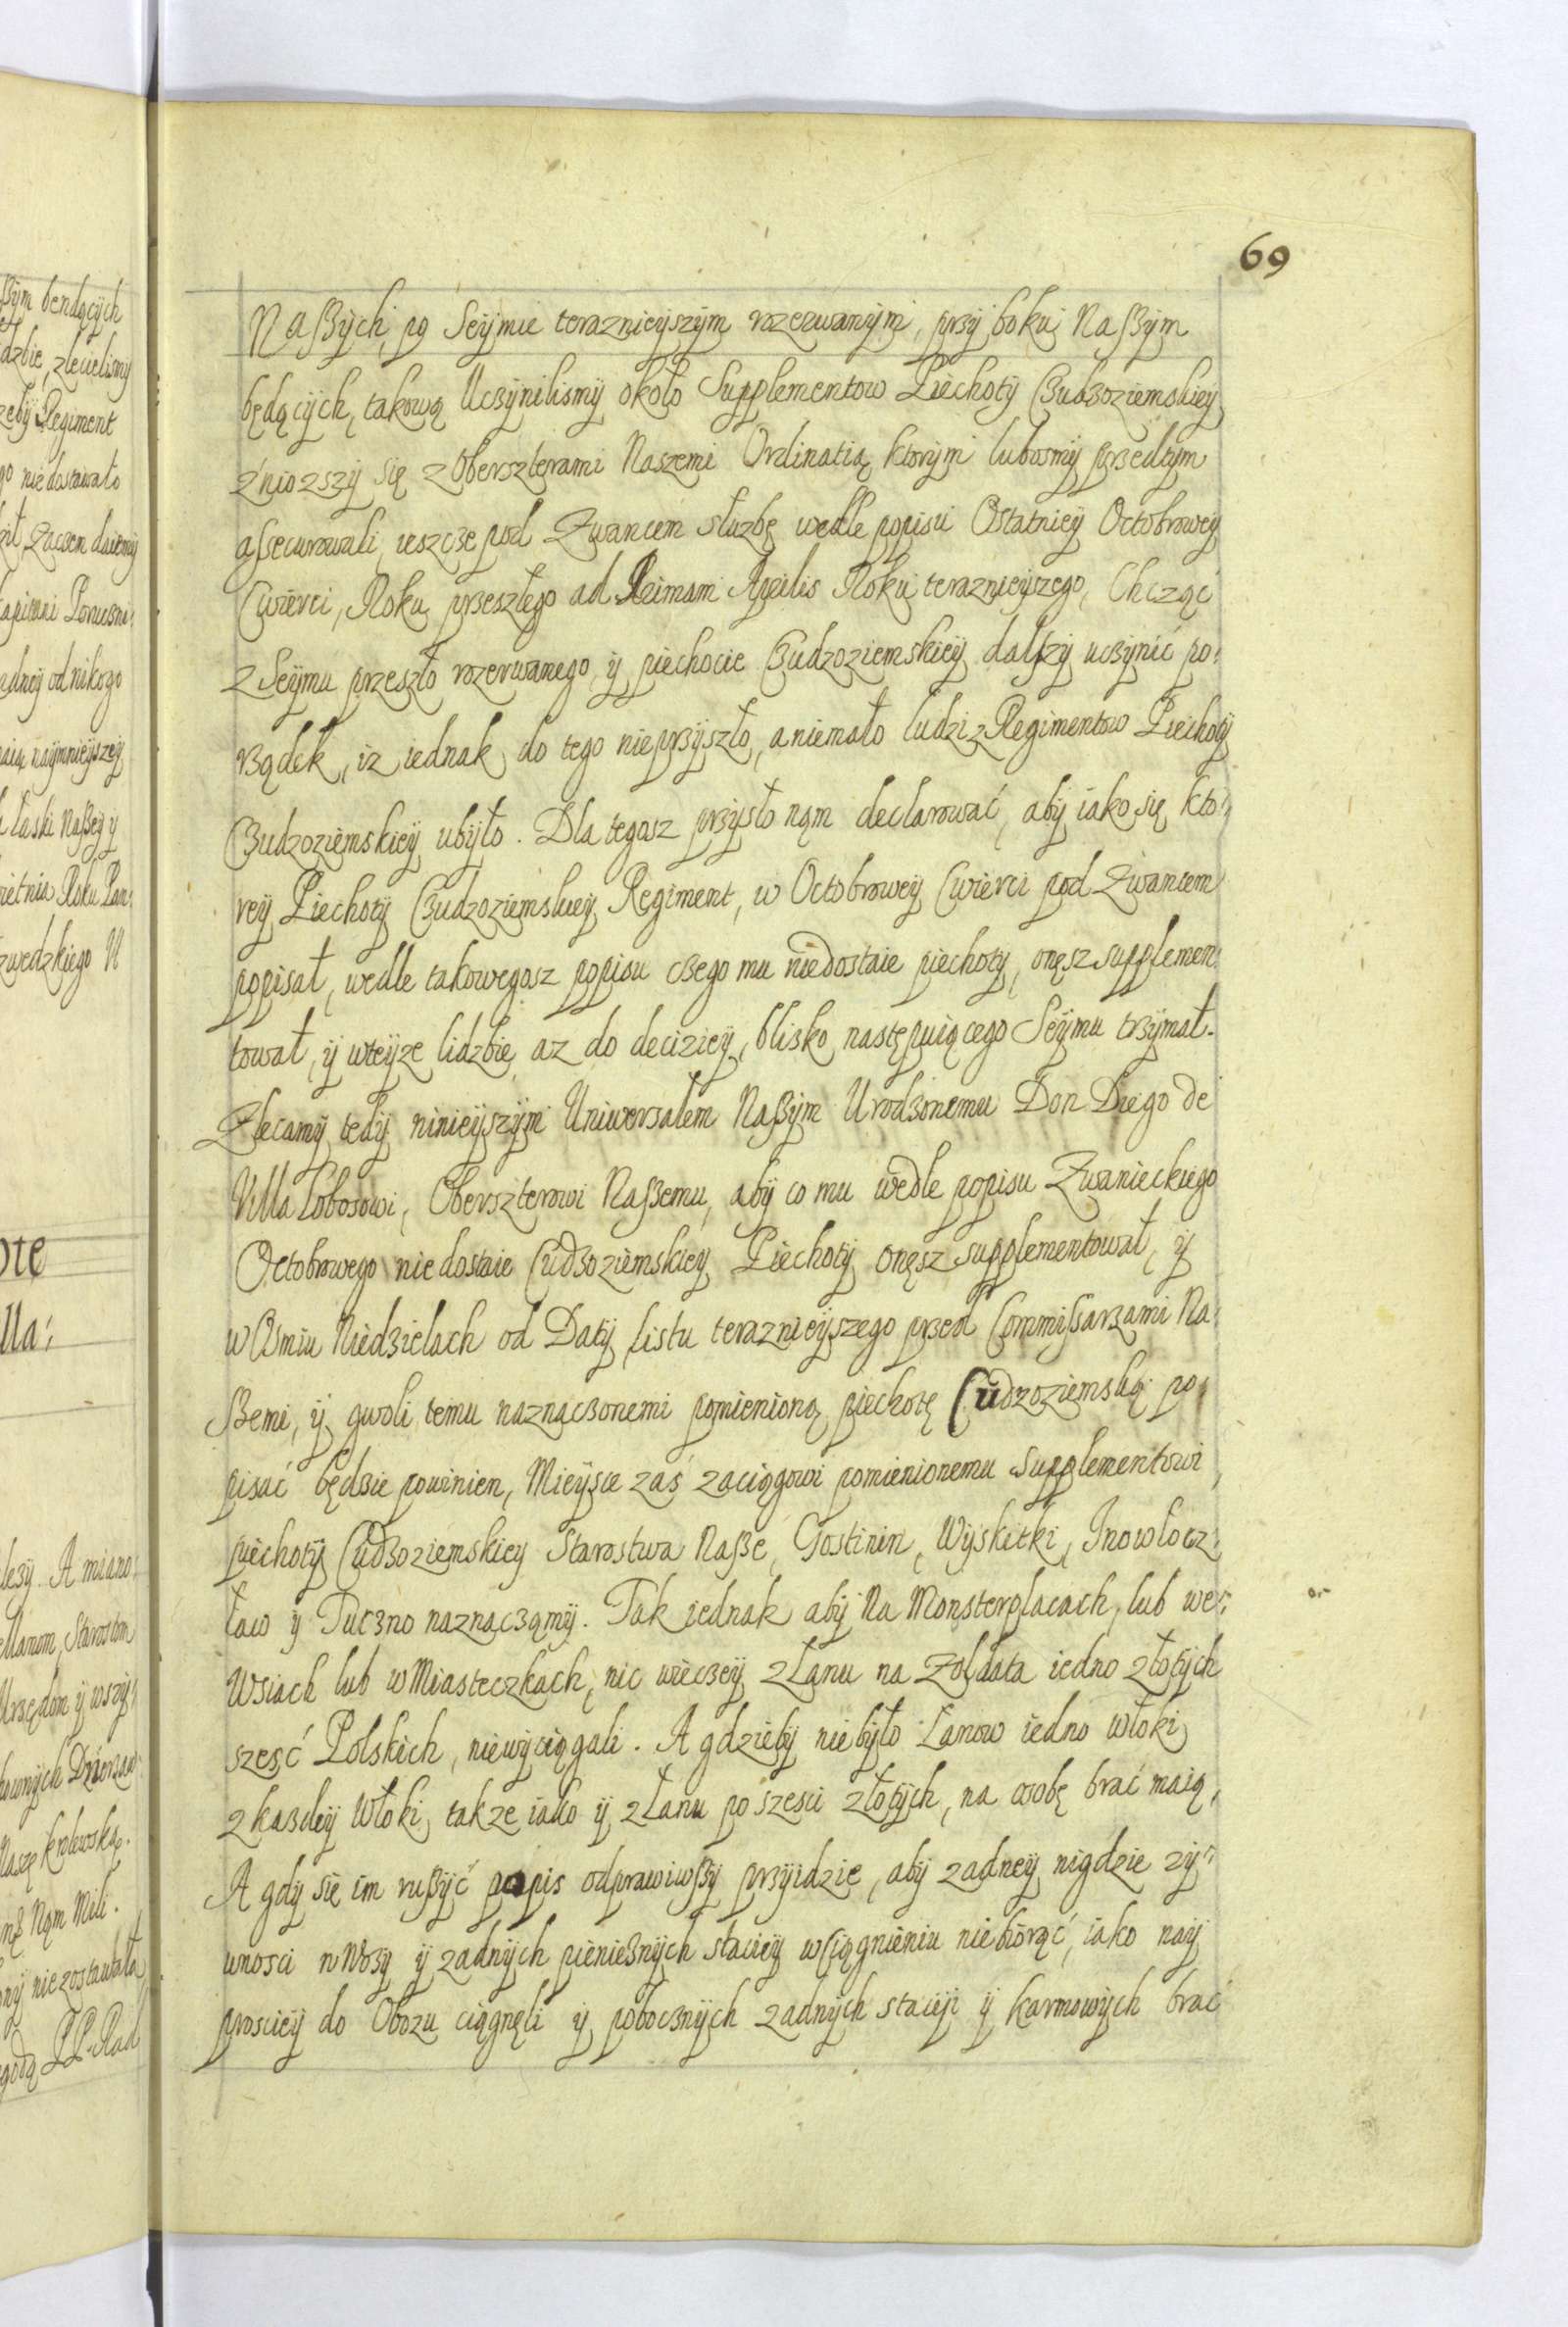 69
Naßych, po Seÿmie teraznieÿszÿm rozerwanÿm, przÿ boku Naßÿm
będącÿch, takową Uczÿnilismÿ około Supplementow Piechotÿ Cudzoziemskieÿ
zniozszÿ się z Oberszterami Naszemi Ordinatią, ktorÿm lubosmÿ przedtÿm
assecurowali, ieszcze pod Zwancem słuzbę wedle popisu Ostatnieÿ Octobroweÿ
Cwierci, Roku przeszłego ad Primam Aprilis Roku teraznieÿszego, Chcząc
z Seÿmu przeszło rozerwanego, ÿ piechocie Cudzoziemskieÿ dalszÿ uczÿnić po:
rządek, iz iednak do tego nieprzÿszło, a niemało ludzi z Regimentow Piechotÿ
Cudzoziemskieÿ ubÿło. Dla tegosz przÿsło nąm declarować, abÿ iako się kto:
reÿ Piechotÿ Cudzoziemskieÿ Regiment, w Octobroweÿ Cwierci pod Zwancem
popisał, wedle takowegosz popisu czego mu niedostaie piechotÿ, onęsz supplemen:
tował, ÿ wteÿze lidzbie az do decizieÿ, blisko następuiącego Seÿmu trzÿmał.
Zlecamÿ tedÿ ninieÿszÿm Uniwersałem Naßÿm Urodzonemu Don Diego de
Villa Lobosowi, Oberszterowi Naßemu, abÿ co mu wedle popisu Zwanieckiego
Octobrowego niedostaie Cudzoziemskieÿ Piechotÿ onęsz supplementował, ÿ
w Osmiu Niedzielach od Datÿ listu teraznieÿszego przed Commissarzami Na:
ßemi, ÿ gwoli temu naznaczonemi pomienioną piechotę Cudzoziemską po:
pisać będzie powinien, Mieÿsce zaś zaciągowi pomienionemu Supplementowi,
piechotÿ Cudzoziemskieÿ Starostwa Naße, Gostinin, Wÿskitki, Inowłocz:
ław ÿ Tuczno naznacząmÿ. Tak iednak abÿ Na Monsterplacach, lub we:
Wsiach lub w Miasteczkach, nic więczeÿ z Łanu na Zołdata iedno złotÿch
szesć Polskich, niewÿciągali. A gdziebÿ niebÿło Łanow iedno włoki
z kazdeÿ Włoki, takze iako ÿ z Łanu po szesci złotÿch, na osobę brać maią,
A gdÿ się im rußÿć popis odprawiwßÿ przÿidzie, abÿ zadneÿ nigdzie zÿ:
wnosci ÿ zadnÿch pieniężnÿch stacieÿ w Ciągnieniu niebiorąć, iako naÿ
prosciey do Obozu ciągnęli ÿ pobocznÿch zadnÿch stacÿi ÿ karmowÿch brać